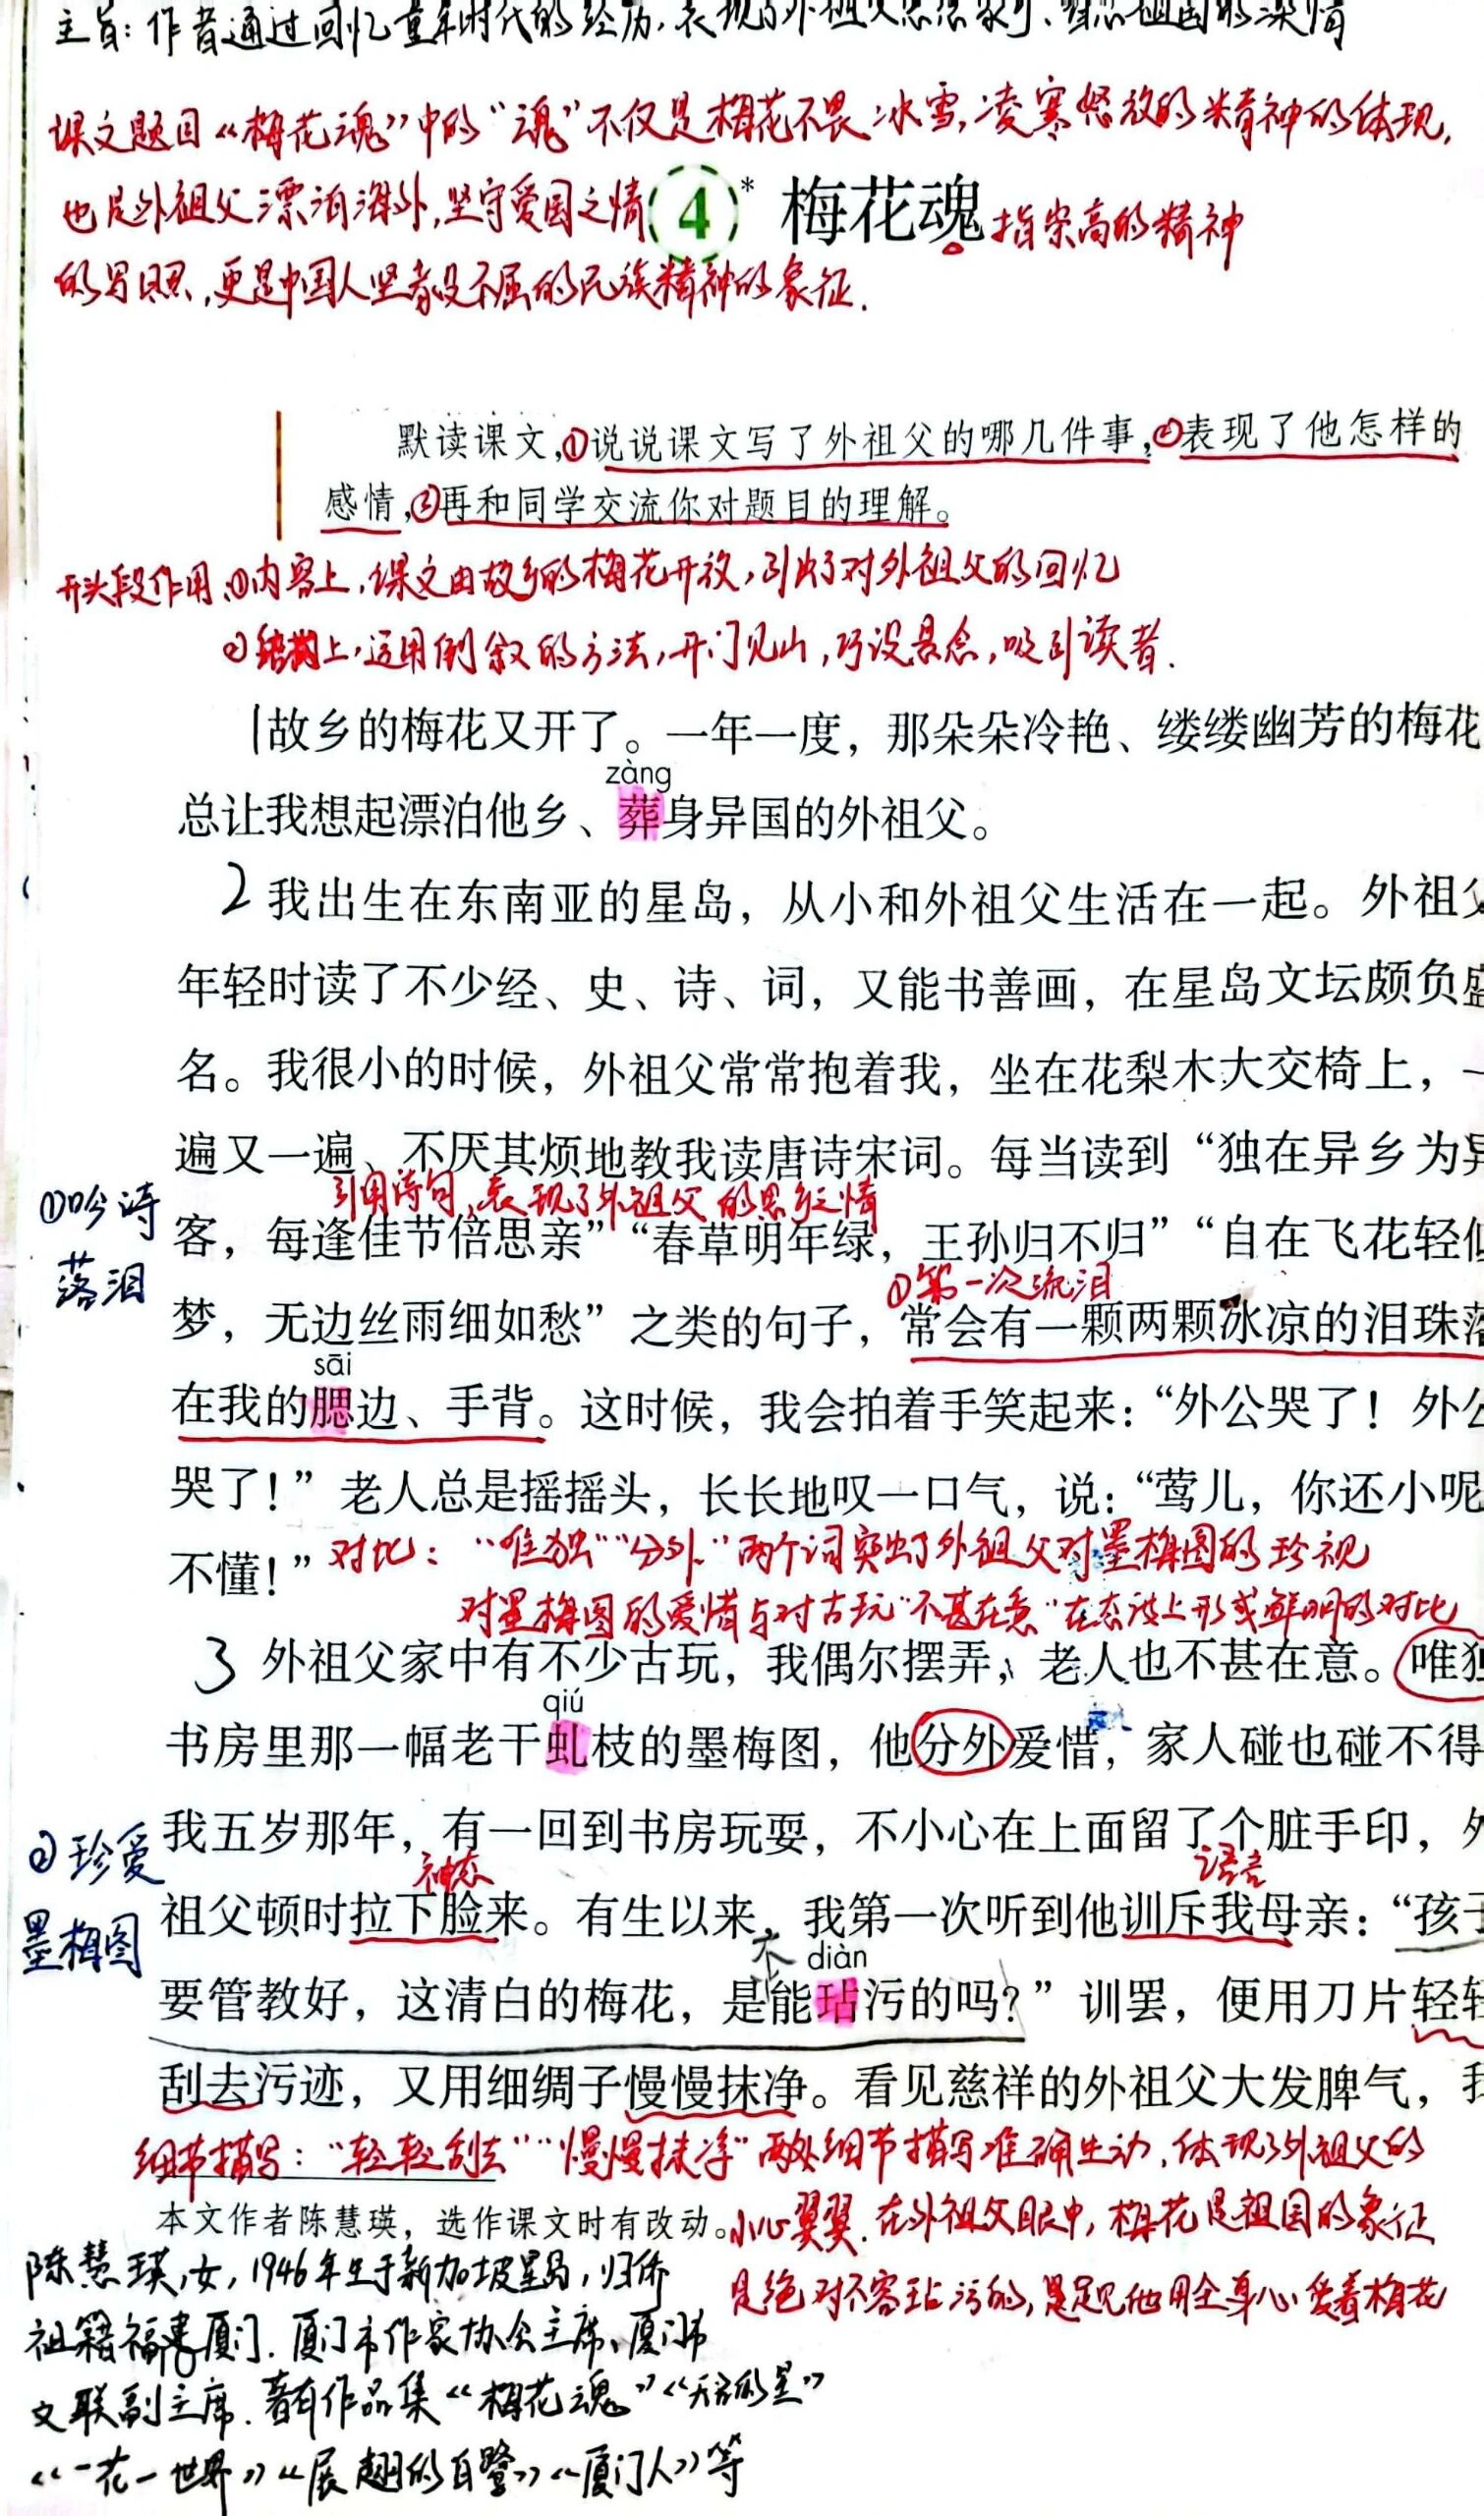 主旨：作者通过回忆童年时代的经历，表现了外祖父思念家乡、眷恋祖国的深情
课文题目《梅花魂》中的“魂”不仅是梅花不畏冰雪，凌寒怒放的精神的体现，
也是外祖父漂泊海外，坚守爱国之情
4* 梅花魂 指崇高的精神
的写照，更是中国人坚毅不屈的民族精神的象征.
默读课文，①说说课文写了外祖父的哪几件事，②表现了他怎样的
感情，③再和同学交流你对题目的理解。
开头段作用：①内容上，课文由故乡的梅花开放，引出了对外祖父的回忆
②结构上，运用倒叙的方法，开门见山，巧设悬念，吸引读者.
1故乡的梅花又开了。一年一度，那朵朵冷艳、缕缕幽芳的梅花
zàng
总让我想起漂泊他乡、葬身异国的外祖父。
2 我出生在东南亚的星岛，从小和外祖父生活在一起。外祖父
年轻时读了不少经、史、诗、词，又能书善画，在星岛文坛颇负盛
名。我很小的时候，外祖父常常抱着我，坐在花梨木大交椅上，一
遍又一遍、不厌其烦地教我读唐诗宋词。每当读到“独在异乡为异
①吟诗
落泪
引用诗句，表现了外祖父的思乡之情
客，每逢佳节倍思亲”“春草明年绿，王孙归不归”“自在飞花轻似
①第一次流泪
梦，无边丝雨细如愁”之类的句子，常会有一颗两颗冰凉的泪珠落
sāi
在我的腮边、手背。这时候，我会拍着手笑起来：“外公哭了！外公
哭了！”老人总是摇摇头，长长地叹一口气，说：“莺儿，你还小呢
不懂！”
对比：“唯独”“分外”两个词突出了外祖父对墨梅图的珍视
对墨梅图的爱惜与对古玩“不甚在意”在态度上形成鲜明的对比
3 外祖父家中有不少古玩，我偶尔摆弄，老人也不甚在意。唯独
qiú
书房里那一幅老干虬枝的墨梅图，他分外爱惜，家人碰也碰不得
我五岁那年，有一回到书房玩耍，不小心在上面留了个脏手印，外
②珍爱
墨梅图
神态
语言
祖父顿时拉下脸来。有生以来，我第一次听到他训斥我母亲：“孩子
不
diàn
要管教好，这清白的梅花，是能玷污的吗？”训罢，便用刀片轻轻
刮去污迹，又用细绸子慢慢抹净。看见慈祥的外祖父大发脾气，我
细节描写：“轻轻刮去”“慢慢抹净”两处细节描写准确生动，体现了外祖父的
小心翼翼. 在外祖父眼中，梅花是祖国的象征
是绝对不容玷污的，足见他用全身心爱着梅花
本文作者陈慧瑛，选作课文时有改动。
陈慧瑛，女，1946年生于新加坡星岛，归侨
祖籍福建厦门. 厦门市作家协会主席、厦门市
文联副主席. 著有作品集《梅花魂》《无名的星》
《一花一世界》《展翅的白鹭》《厦门人》等